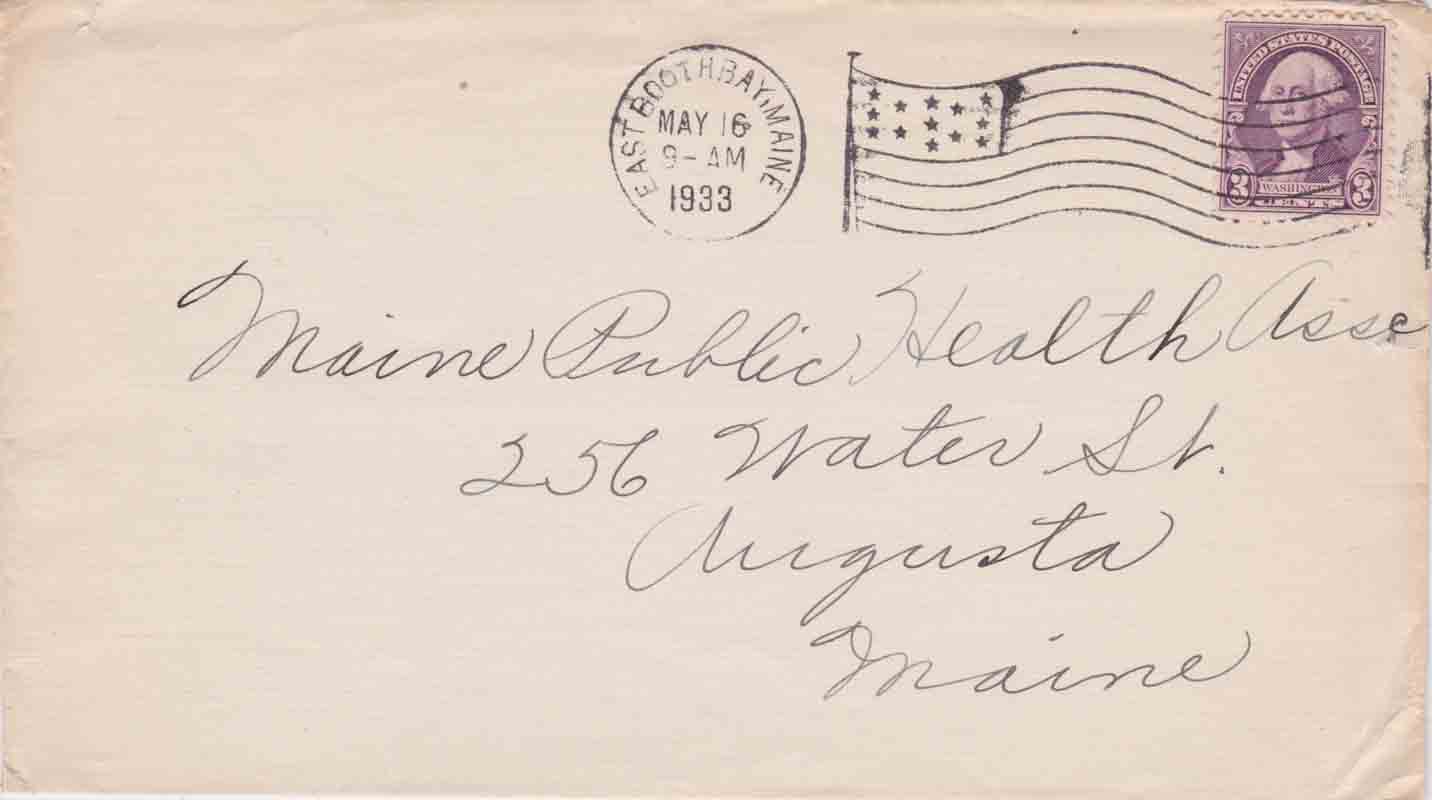 EAST BOOTHBAY, MAINE
MAY 16
9-AM
1933
UNITED STATES POSTAGE
3 WASHINGTON 3
CENTS
Maine Public Health Asso
256 Water St.
Augusta
Maine